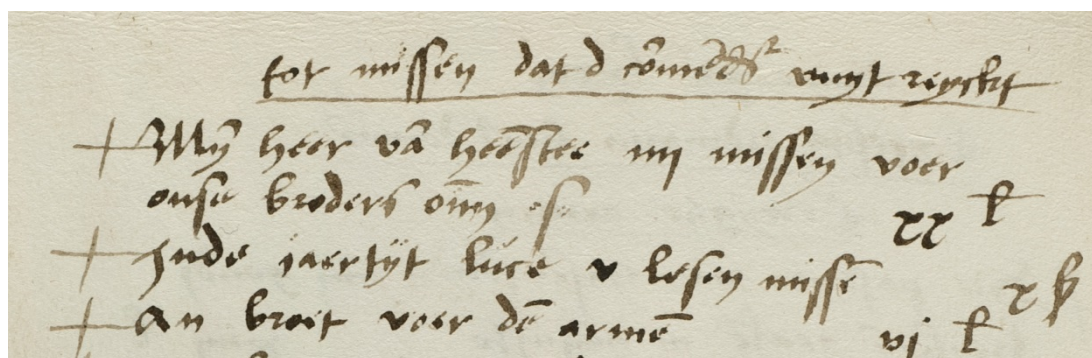 tot missen dat d co͞me͞d vuyt reyckt
My͞ heer va͞ hee͞stee iiij missen voer
onse broders om͞
xx l
Inde jaertijt luce v lesen misse͞
x ß
An broet voer de͞ arme͞
vj l